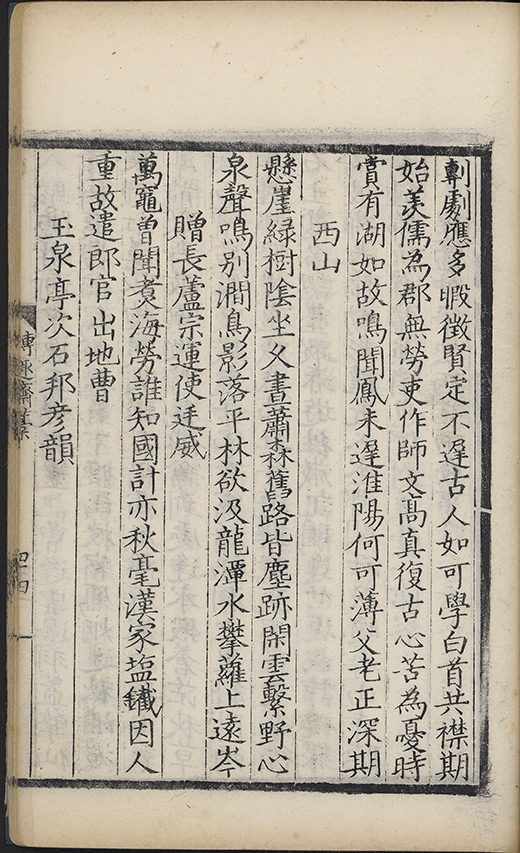 剸劇應多暇徵賢定不遲古人如可學白首共襟期
始羡儒為郡無勞吏作師文高真復古心苦為憂時
賞有湖如故鳴聞鳳未遲淮陽何可薄父老正深期
西山
懸崖綠樹陰坐久晝蕭森舊路皆塵跡閑雲繫野心
泉聲鳴別澗鳥影落平林欲汲龍潭水攀蘿上遠岑
贈長蘆宗運使廷威
萬竈曾聞煑海勞誰知國計亦秋毫漢家塩鐵因人
重故遣郎官出地曹
玉泉亭次石邦彥韻